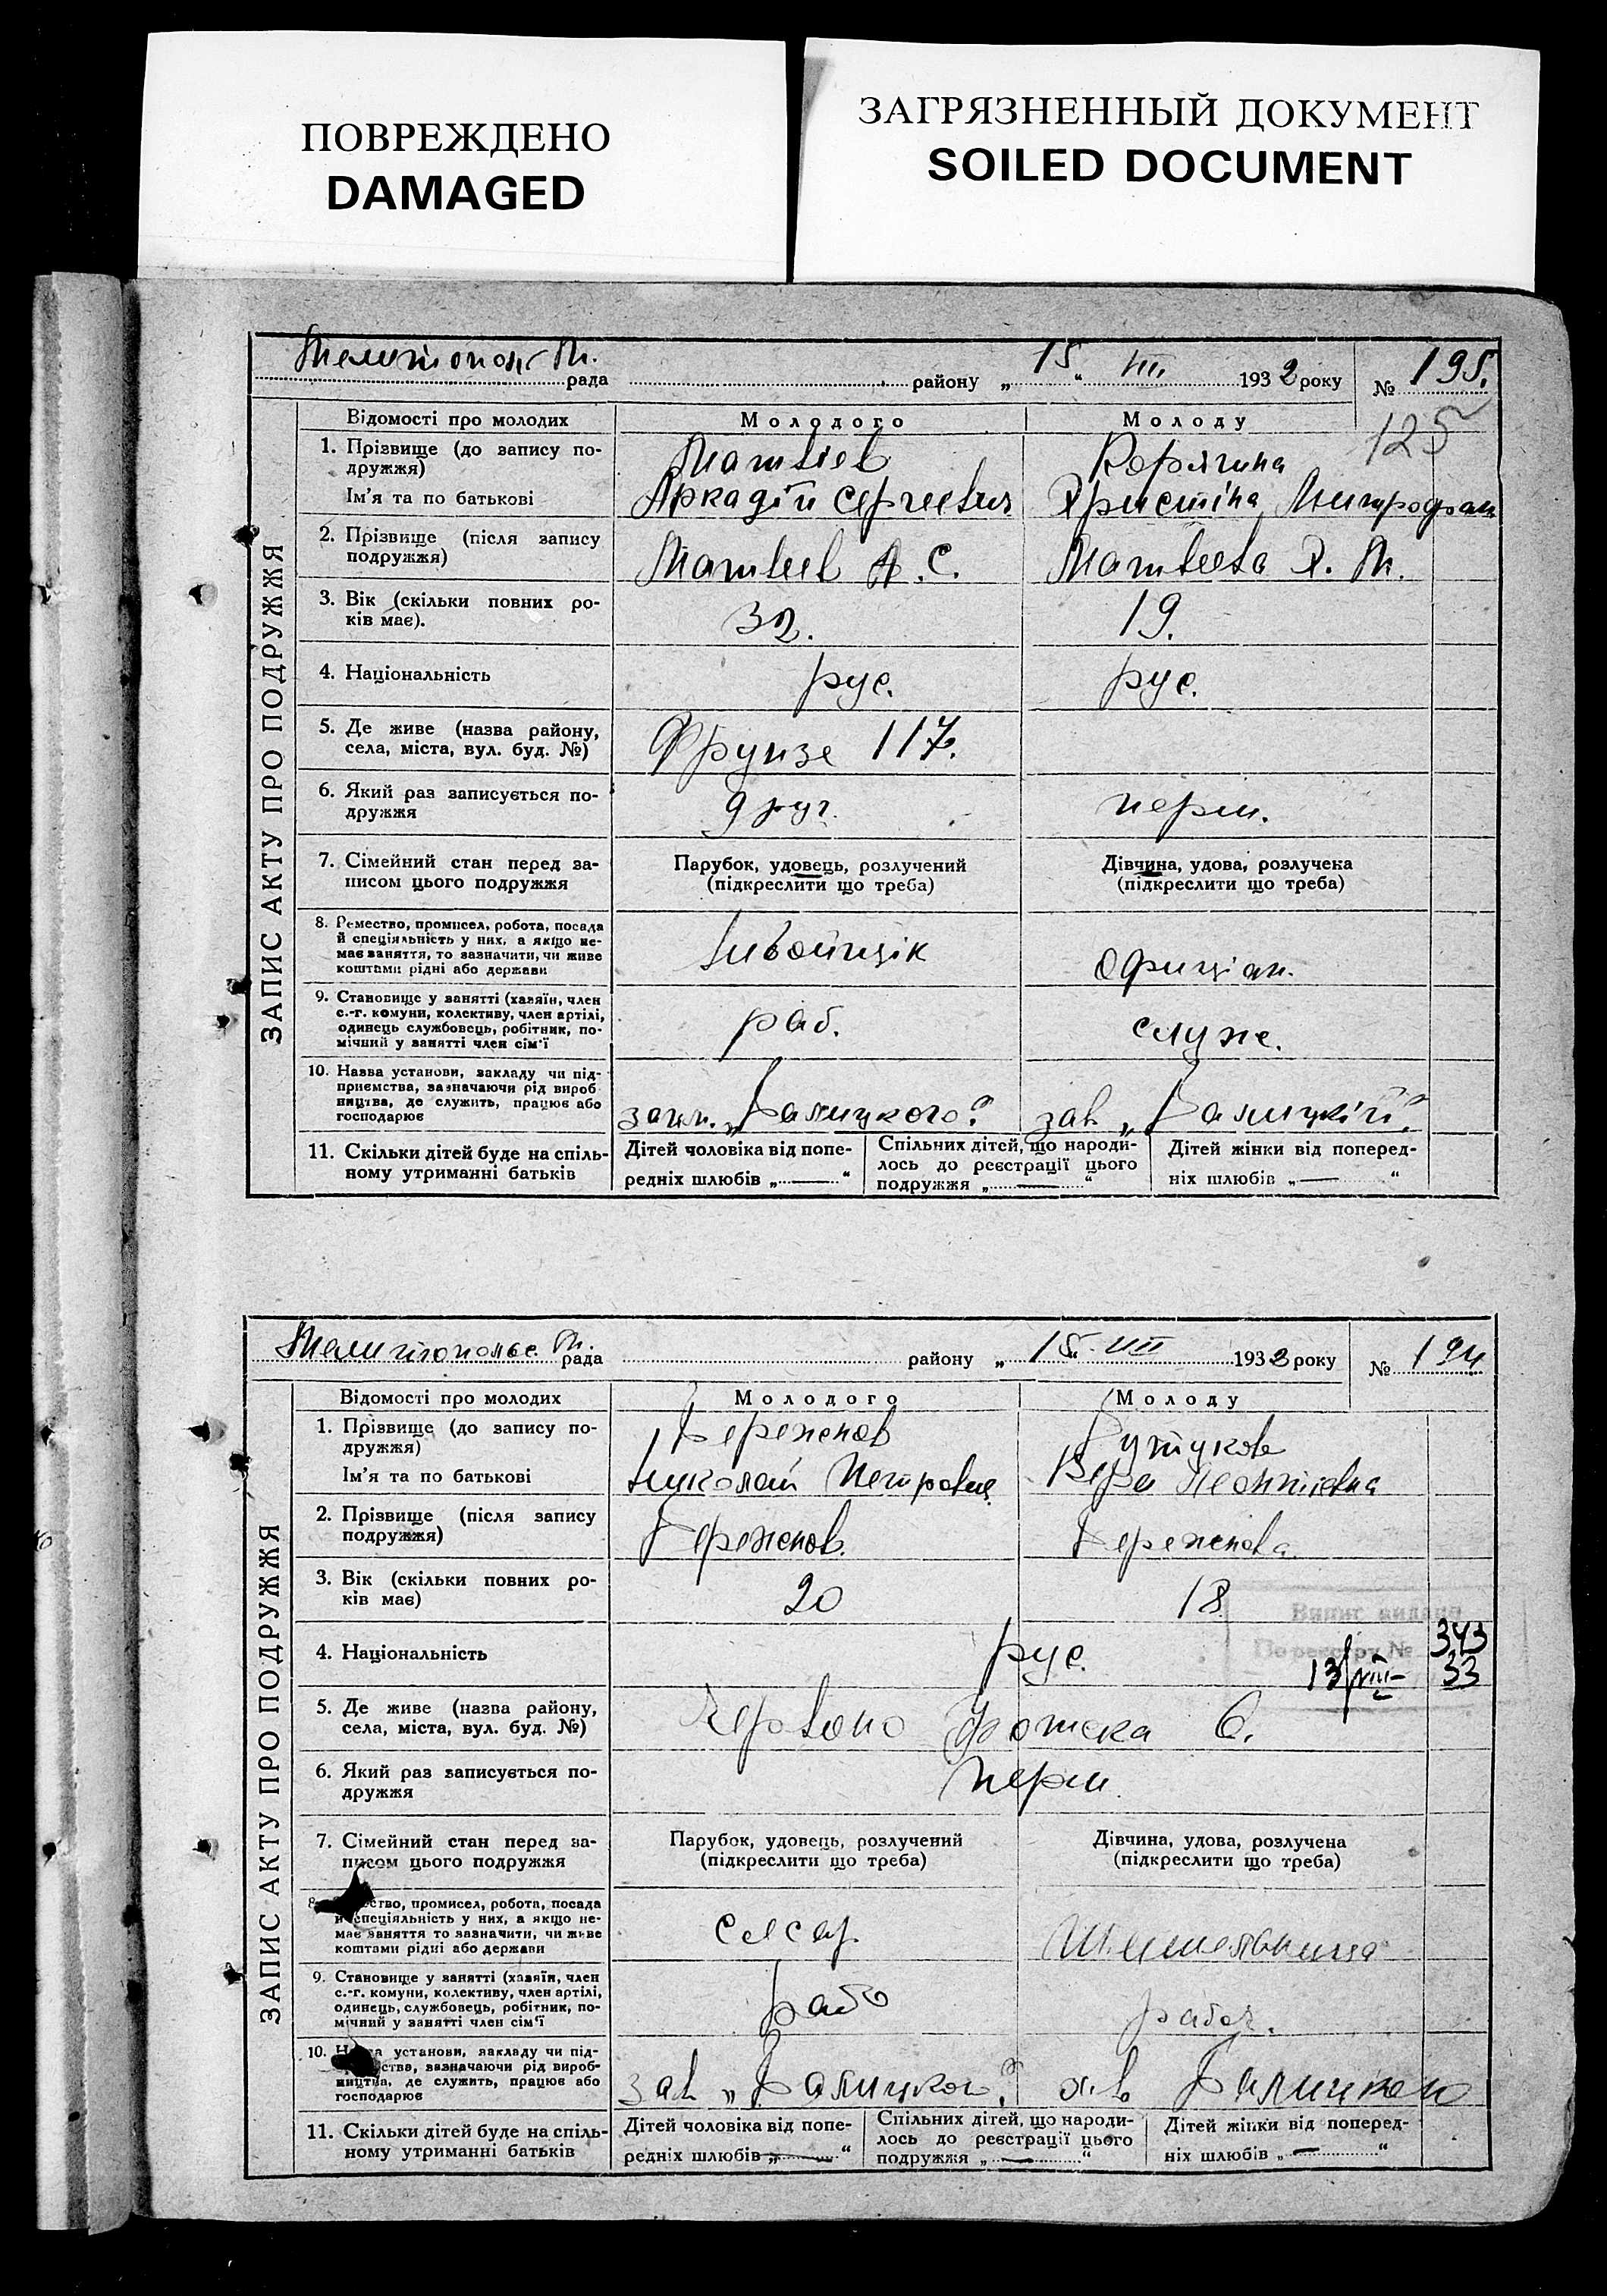 ПОВРЕЖДЕНО
DAMAGED
ЗАГРЯЗНЕННЫЙ ДОКУМЕНТ
SOILED DOCUMENT
рада району „15“ VIII 1932 року № 195.
125
ЗАПИС АКТУ ПРО ПОДРУЖЖЯ
Відомості про молодих Молодого Молоду
1. Прізвище (до запису по-
дружжя)
Матвієв Корягина
Ім'я та по батькові Аркадій Сергеевич Христіна Митрофан
2. Прізвище (після запису
подружжя)
Матвеев А. С. Матвеева Х. М.
3. Вік (скільки повних ро-
ків має).
32. 19.
4. Національність рус. рус.
5. Де живе (назва району,
села, міста, вул. буд. №)
Фрунзе 117.
6. Який раз записується по-
дружжя
друг. перш.
7. Сімейний стан перед за-
писом цього подружжя
Парубок, удовець, розлучений
(підкреслити що треба)
Дівчина, удова, розлучека
(підкреслити що треба)
8. Ремество, промисел, робота, посада
й спеціяльність у них, а якщо не-
має заняття, то зазначити, чи живе
коштами рідні або держави
Офиціан.
9. Становище у занятті (хазяїн, член
с.-г. комуни, колективу, член артілі,
одинець службовець, робітник, по-
мічний у занятті член сім'ї
раб. служ.
10. Назва установи, закладу чи під-
приємства, зазначаючи рід вироб
ництва, де служить, працює або
господарює
„Балицкого“ зав „Балицкій“
11. Скільки дітей буде на спіль-
ному утриманні батьків
Дітей чоловіка від попе-
редніх шлюбів „—“
Спільних дітей, що народи-
лось до реєстрації цього
подружжя „—“
Дітей жінки від поперед-
ніх шлюбів „—“
рада району „15“ VIII 1932 року № 194
ЗАПИС АКТУ ПРО ПОДРУЖЖЯ
Відомості про молодих Молодого Молоду
1. Прізвище (до запису по-
дружжя)
Береженов
Ім'я та по батькові Николай Петрович Вера Леонтіевна
2. Прізвище (після запису
подружжя)
Береженов. Береженова
3. Вік (скільки повних ро-
ків має)
20 18
Випис видано
По реєстру № 343
13/VIII- 33
4. Національність рус.
5. Де живе (назва району,
села, міста, вул. буд. №)
Червоно 6.
6. Який раз записується по-
дружжя
перш
7. Сімейний стан перед за-
писом цього подружжя
Парубок, удовець, розлучений
(підкреслити що треба)
Дівчина, удова, розлучена
(підкреслити що треба)
8. ство, промисел, робота, посада
й спеціяльність у них, а якщо не-
має заняття то зазначити, чи живе
коштами рідні або держави
слесар
9. Становище у занятті (хазяїн, член
с.-г. комуни, колективу, член артілі,
одинець, службовець, робітник, по-
мічний у занятті член сім'ї
рабо рабоч.
10. установи, закладу чи під-
ства, зазначаючи рід вироб-
ництва, де служить, працює або
господарює
зав „Балицкого“ Балицкого
11. Скільки дітей буде на спіль-
ному утриманні батьків
Дітей чоловіка від попе-
редніх шлюбів „—“
Спільних дітей, що народи-
лось до реєстрації цього
подружжя „—“
Дітей жінки від поперед-
ніх шлюбів „—“